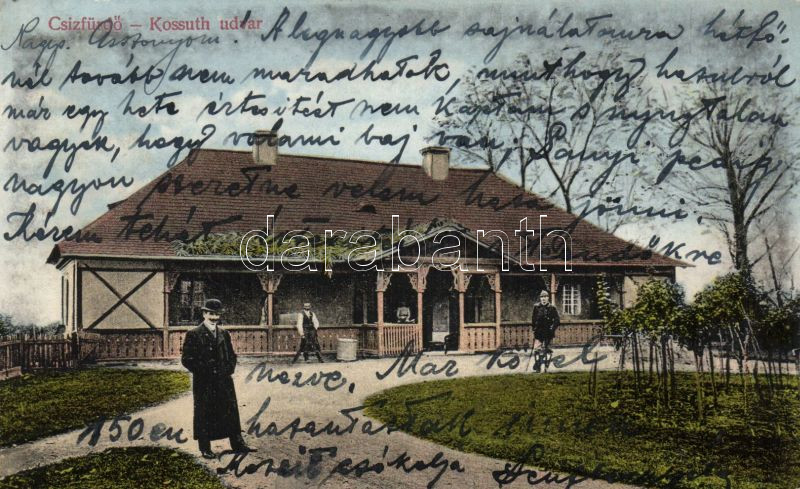 Csizfürdő – Kossuth udvar
Nagys. Asszonyom! A legnagyobb sajnálatomra hétfő-
nél tovább nem maradhatok, minthogy hazulról
már egy hete értesítést nem kaptam s nyugtalan
vagyok, hogy valami baj van, Panyi pedig
nagyon szeretne velem haza jönni.
Kérem tehát
darabanth
nézve. Mar közel
150 en hazautaztak
Kezeit csókolja